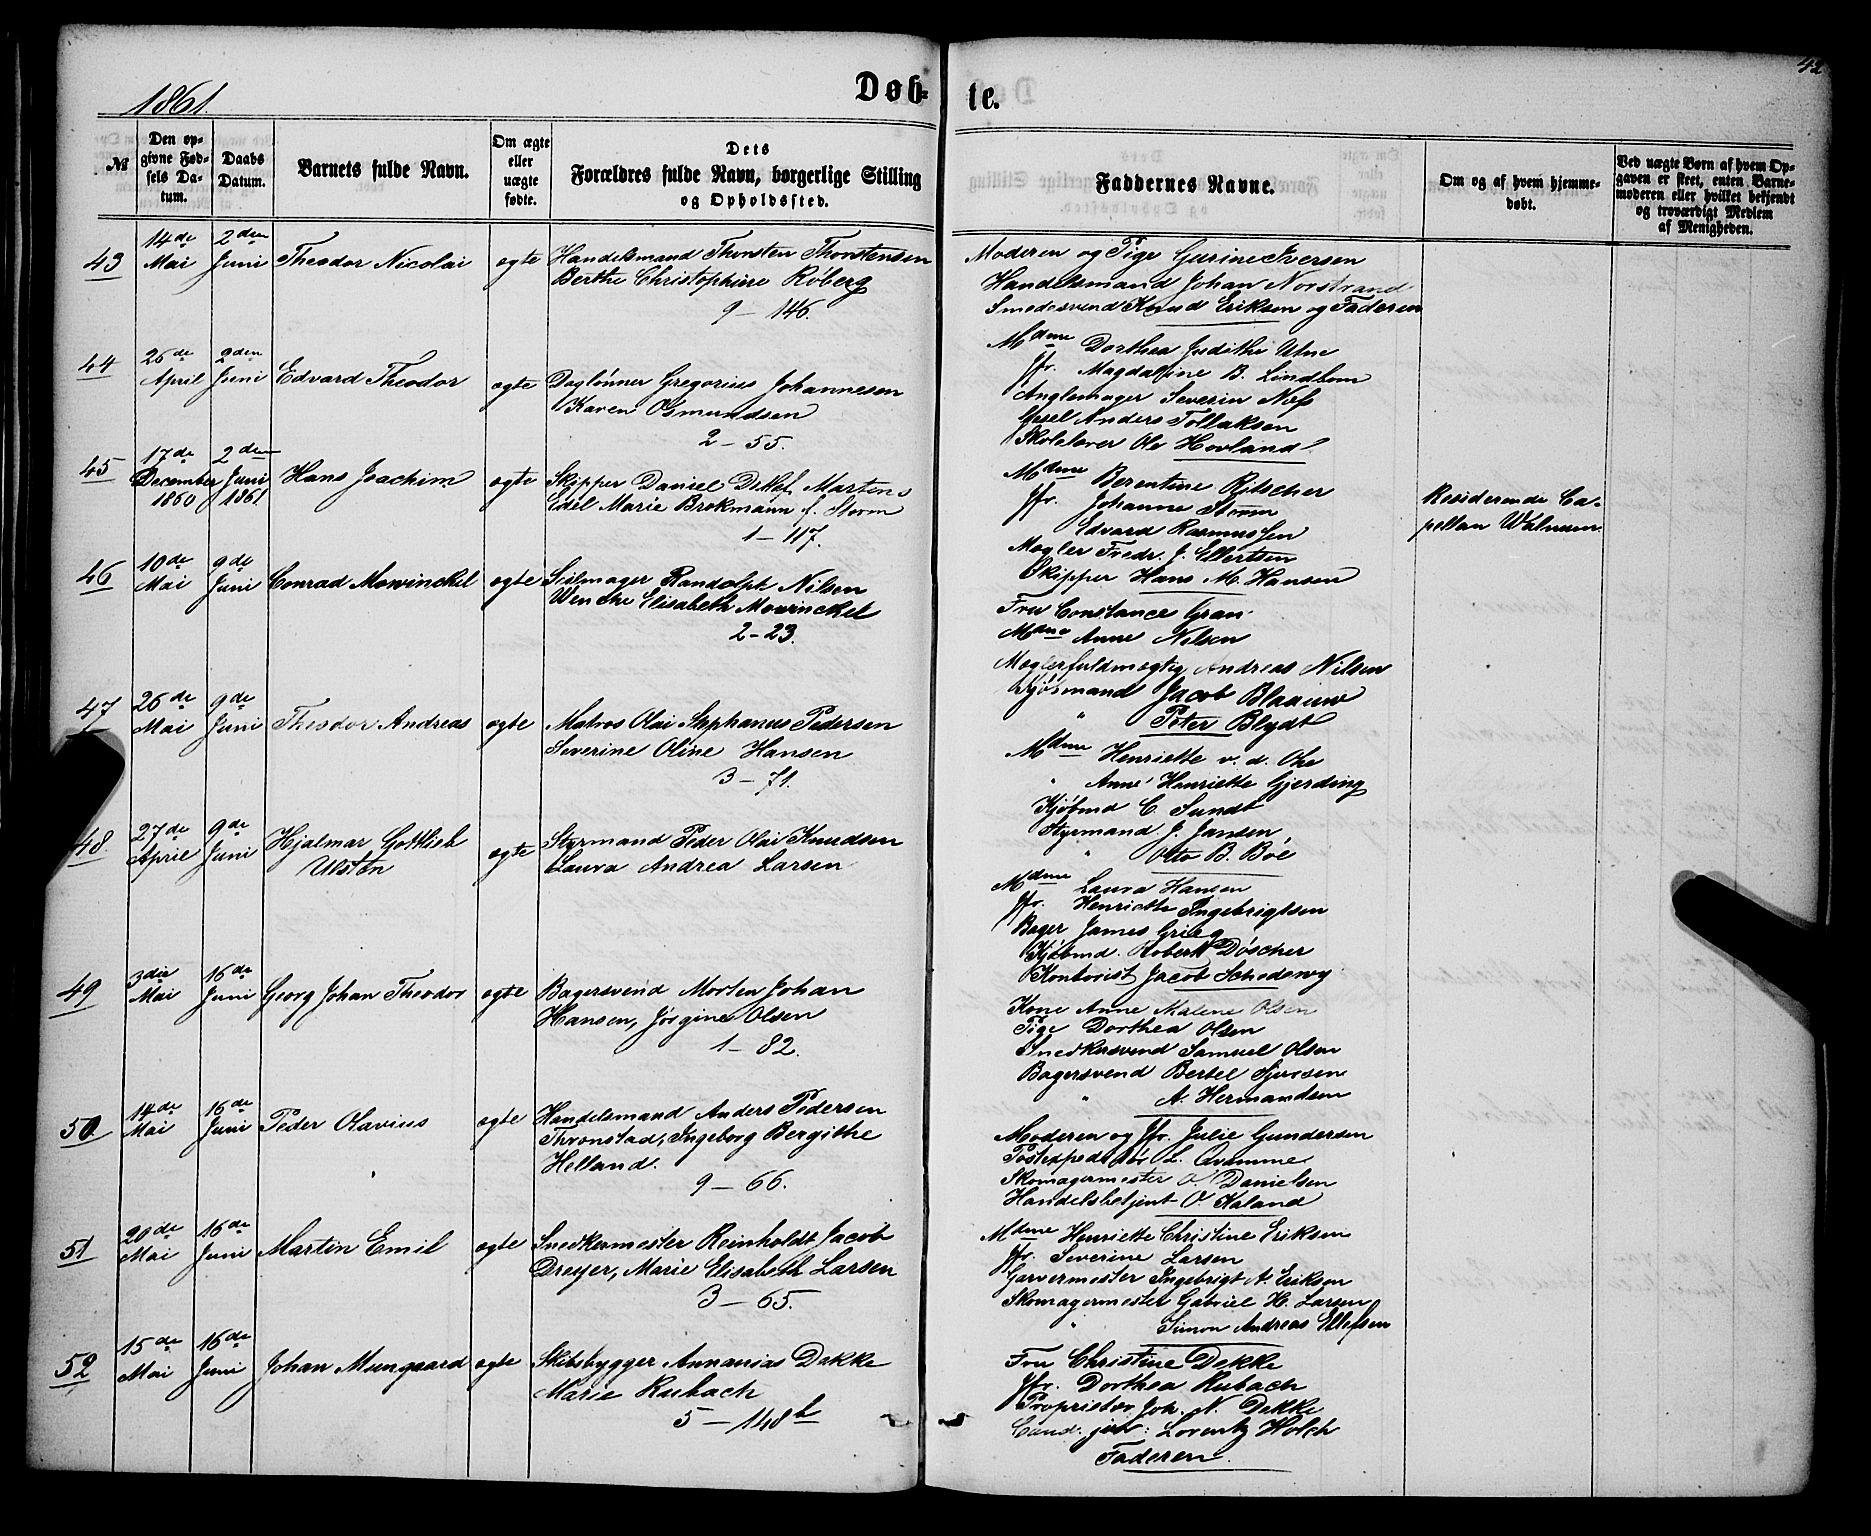 42
1861.
Døb-te.
№
Den op-
givne Fød-
sels Da-
tum.
Daabs
Datum.
Barnets fulde Navn.
Om ægte
eller
uægte
fødte.
Dets
Forældres fulde Navn, borgerlige Stilling
og Opholdssted.
Faddernes Navne.
Om og af hvem hjemme-
døbt.
Ved uægte Børn af hvem Op-
gaven er skeet, enten Barne-
moderen eller hvilket bekjendt
og troværdigt Medlem
af Menigheden.
43
14de Mai
2den Juni
Theodor Nicolai
ægte
Handelsmand Thorsten Thorstensen
Berthe Christophine Roberg
9 - 146.
Moderen og Pige Gurine Iversen
Handelsmand Johan Norstrand
Smedesvend Knud Eriksen og Faderen
44
26de April
2den Juni
Edvard Theodor
ægte
Daglønner Gregorius Johannesen
Karen Osmundsen
2 - 55.
Mdme Dorthea Judithe Utne
Jfr. Magdaline B. Lindbom
Anglemager Severin Næss
Gesel Anders Tollaksen
Skolelærer Ole Hovland
45
17de December 1860
2den Juni 1861
Hans Joachim
ægte
Skipper Daniel Detlef Martens
Edel Marie Brokmann f. Storm
1 - 117.
Mdme Berentine Ritscher
Jfr. Johanne Storm
Edvard Rasmussen
Mægler Fredr. J. Ellertsen
Skipper Hans M. Hansen
Residerende Ca-
pellan Walnum
46
10de Mai
9de Juni
Conrad Mowinckel
ægte
Seilmager Randolph Nilsen
Wenche Elisabeth Mowinckel
2 - 23.
Fru Constance Gran
Mdme Anne Nilsen
Mæglerfuldmægtig Andreas Nilsen
Kjøbmand Jacob Blaauw
" Peter Blydt
47
26de Mai
9de Juni
Theodor Andreas
ægte
Matros Olai Stephanus Pedersen
Severine Oline Hansen
3 - 71.
Mdme Henriette v. d. Ohe
" Anne Henriette Gjerding
Kjøbmd C. Sundt
Styrmand J. Jansen
" Otto B. Bøe
48
27de April
9de Juni
Hjalmar Gottlieb
Ulsten
ægte
Styrmand Peder Olai Knudsen
Laura Andrea Larsen
Mdme Laura Hansen
Jfr. Henriette Ingebrigtsen
Bager James Grieg
Kjøbmd. Robert Døscher
Kontorist Jacob Schedewy
49
3die Mai
16de Juni
Georg Johan Theodor
ægte
Bagersvend Morten Johan
Hansen, Jørgine Olsen
1 - 82.
Kone Anne Malene Olsen
Pige Dorthea Olsen
Snedkersvend Samuel Olsen
Bagersvend Bertel Sjursen
" A. Hermandsen
50
14de Mai
16de Juni
Peder Olavius
ægte
Handelsmand Anders Pedersen
Thronstad, Ingeborg Bergithe
Helland.
9 - 66.
Moderen og Jfr. Julie Gundersen
Postexpeditør L. Qvamme
Skomagermester O. Danielsen
Handelsbetjent O. Kaland
51
20de Mai
16de Juni
Martin Emil
ægte
Snedkermester Reinholdt Jacob
Dreyer, Marie Elisabeth Larsen
3 - 65.
Mdme Henriette Christine Eriksen
Jfr. Severine Larsen
Garvermester Ingebrigt A. Eriksen
Skomagermester Gabriel H. Larsen
" Simon Andreas Ellefsen
52
15de Mai
16de Juni
Johan Mungaard
ægte
Skibsbygger Annanias Dekke
Marie Rubach
5 - 148b
Fru Christine Dekke
Jfr. Dorthea Rubach
Proprietær Joh. N. Dekke
Cand. jur: Lorentz Holch
Faderen